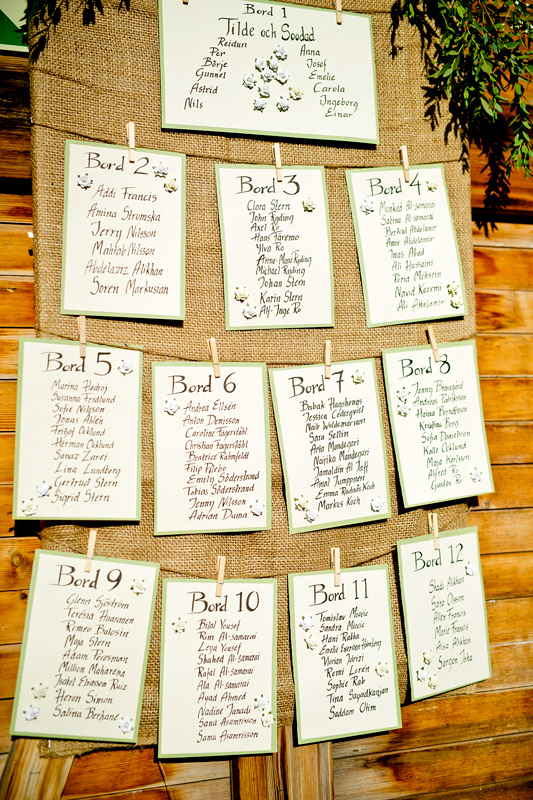 Bord 1
Tilde och Soodad
Reidun
Per
Börje
Gunnel
Astrid
Nils
Anna
Josef
Emelie
Carola
Ingeborg
Einar
Bord 2
Addi Francis
Amina Stromska
Jerry Nilsson
Mahtob Nilsson
Abdelaziz Alikhan
Soren Markusian
Bord 3
Clara Stern
John Ryding
Axel Ro
Hans Faremo
Ylva Ro
Anne-Marie Ryding
Michael Ryding
Johan Stern
Karin Stern
Alf-Inge Ro
Bord 4
Al-samarai
Sabina Al-samarai
Abdelamir
Amir Abdelamir
Inas Abed
Ali Hussaini
Poria Mohsein
Navid Kazemi
Ali Abdelamir
Bord 5
Marina Hedroj
Susanna Fridlund
Sofie Nilsson
Jonas Ahlén
Fritjof Ocklund
Herman Ocklund
Sanaz Zarei
Lina Lundberg
Gertrud Stern
Sigrid Stern
Bord 6
Andrea Eilsén
Anton Denisson
Caroline Fagerståhl
Christian Fagerståhl
Beatrice Rahmfeldt
Filip Pilebo
Emily Söderstrand
Tobias Söderstrand
Jenny Nilsson
Adrian Duma
Bord 7
Babak Haghshenas
Jessica Cederqvist
Nair Woldemariam
Sara Sellin
Arta Mandegari
Noirika Mandegari
Jamaldin Al Jaff
Amal Jumppsen
Emma Radnäs Koch
Markus Koch
Bord 8
Jenny
Andreas Patriksson
Helma Berndtsson
Kristina Berg
Sofia Danielsson
Kalle Ocklund
Maja Karlsson
Alfred Ro
Gustav Ro
Bord 9
Glenn Sjöström
Terésia Haaranen
Romeo Balosin
Maja Stern
Adam Persman
Million Maharena
Isabel Eliasson Ruiz
Heron Simon
Salina Berhane
Bord 10
Bilal Yousef
Rim Al-samarai
Leya Yousef
Shahed Al-samarai
Rafal Al-samarai
Ala Al-samarai
Ayad Ahmed
Nadine Janadi
Sana Asamrissen
Sama Asamrissen
Bord 11
Tomislav Mocic
Sandra Mocic
Hani Rabba
Emelie
Vivian Idrizi
Remi Lirén
Sophie Rab
Tina Sayadkanjan
Saddam Ohim
Bord 12
Shadi Alikhan
Sara Olsson
Allen Francis
Mario Francis
Aisa Alikhan
Sargon Isha